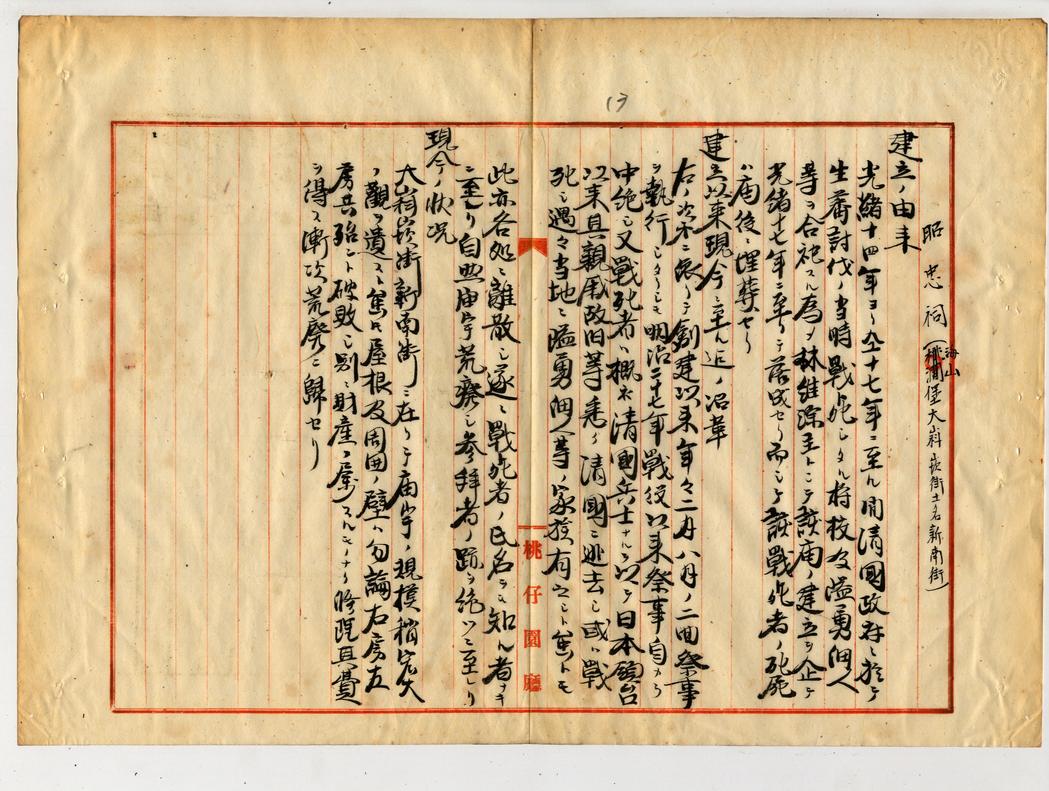 13
昭忠祠(海山堡大嵙崁街土名新南街)
建立ノ由来
光緒十四年ヨリ仝十七年ニ至ル間清國政府ニ於テ
生蕃討伐ノ当時戰死シタル将校及隘勇佃人
等ヲ合祀スル為メ林維源主トシテ該廟ノ建立ヲ企テ
光緒十七年ニ至リテ落成セリ而シテ該戰死者ノ死屍
ハ廟後ニ埋葬セリ
建立以来現今ニ至ル迄ノ沿革
右ノ次第ニ依リテ創建以来年々二月八月ノ二回祭事
ヲ執行シタリシモ明治二十七年戰役以来祭事自カラ
中絶シ又戰死者ハ概ネ清國兵士ナルヲ以テ日本領台
以来其親戚故旧等悉ク清國ニ逃去シ或ハ戰
死シ遇々当地ニ隘勇佃人等ノ家族有之シト雖トモ
此亦各処ニ離散シ遂ニ戰死者ノ氏名ヲモ知ル者ナキ
ニ至レリ自然庙宇荒廃シ参拝者ノ跡ヲ絶ツニ至レリ
現今ノ状況
大嵙崁街新南街ニ在リテ庙宇ノ規模稍宏大
ノ觀ヲ遺スト雖モ屋根及周囲ノ壁ハ勿論右房左
房共殆ント破敗シ別ニ財産ノ屬スルモノナク修理其費
ヲ得ス漸次荒廃ニ歸セリ
桃仔園廳